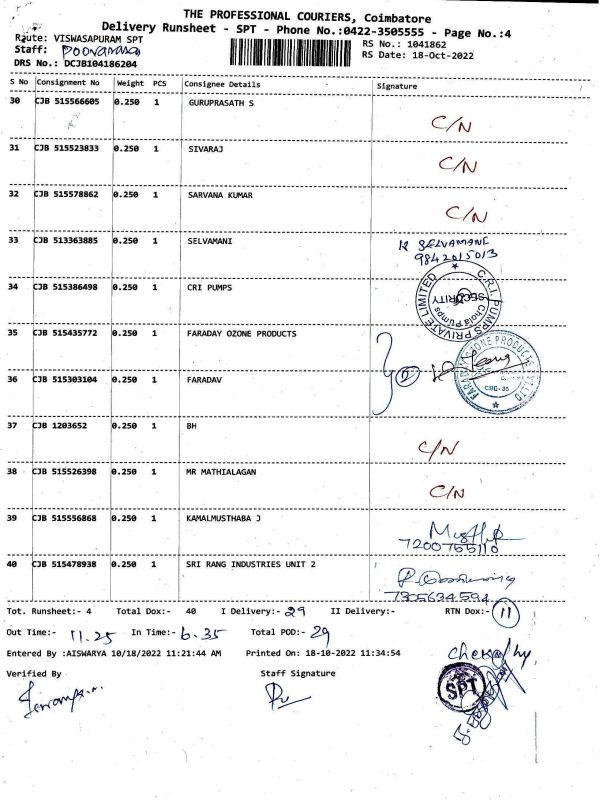 THE PROFESSIONAL COURIERS, Coimbatore
Delivery Runsheet - SPT - Phone No.:0422-3505555 - Page No.:4
Route: VISWASAPURAM SPT
RS No.: 1041862
Staff:
RS Date: 18-Oct-2022
DRS No.: DCJB104186204
S No Consignment No Weight PCS Consignee Details Signature
30 CJB 515566605 0.250 1 GURUPRASATH S
C/N
31 CJB 515523833 0.250 1 SIVARAJ
C/N
32 CJB 515578862 0.250 1 SARVANA KUMAR
C/N
33 CJB 513363885 0.250 1 SELVAMANI
SELVAMANI
9842015013
34 CJB 515386498 0.250 1 CRI PUMPS
C.R.I. PUMPS PRIVATE LIMITED
SECURITY
Chola Pumps
35 CJB 515435772 0.250 1 FARADAY OZONE PRODUCTS
FARADAY OZONE PRODUCTS PVT LTD
CBE-35
2
36 CJB 515303104 0.250 1 FARADAV
37 CJB 1203652 0.250 1 BH
C/N
38 CJB 515526398 0.250 1 MR MATHIALAGAN
C/N
39 CJB 515556868 0.250 1 KAMALMUSTHABA J
7200755110
40 CJB 515478938 0.250 1 SRI RANG INDUSTRIES UNIT 2
7305634594
Tot. Runsheet:- 4 Total Dox:- 40 I Delivery:- 29 II Delivery:- RTN Dox:- 11
Out Time:- 11.25 In Time:- 6.35 Total POD:- 29
Entered By :AISWARYA 10/18/2022 11:21:44 AM Printed On: 18-10-2022 11:34:54
Verified By Staff Signature
SPT